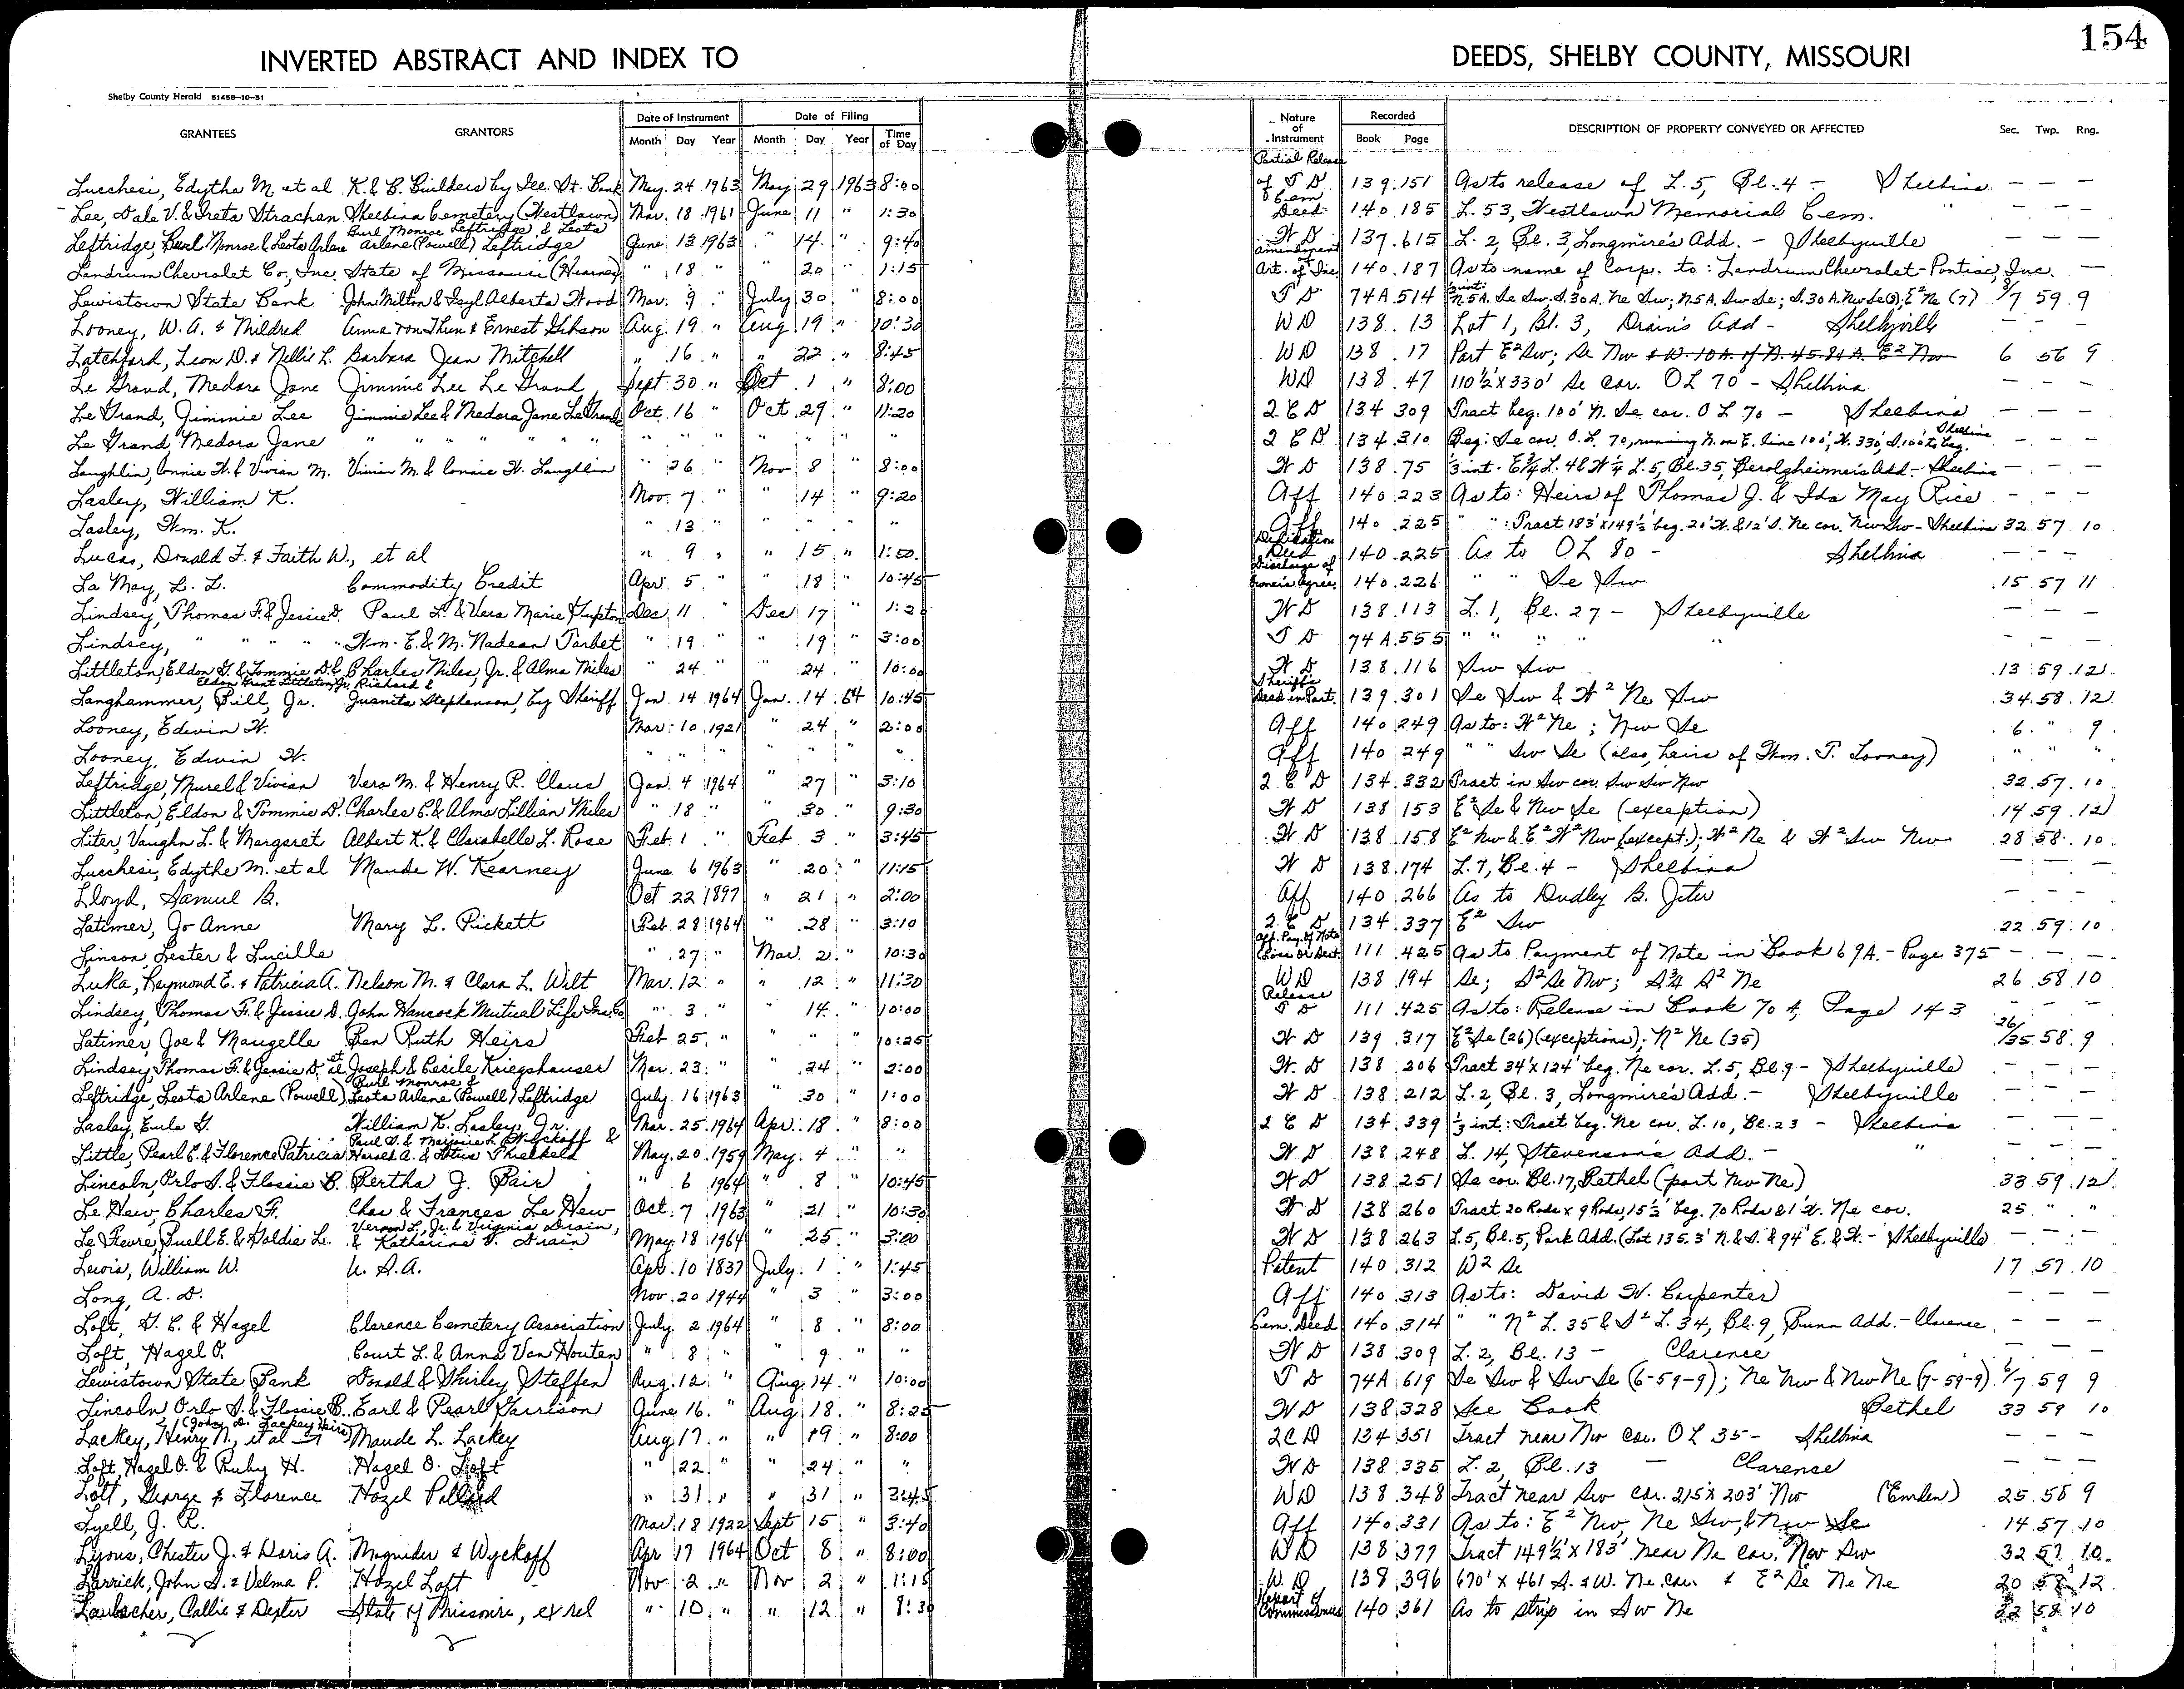 154
INVERTED ABSTRACT AND INDEX TO DEEDS, SHELBY COUNTY, MISSOURI
Shelby County Herald 51458-10-51
GRANTEES GRANTORS Date of Instrument Date of Filing Nature of Instrument Recorded DESCRIPTION OF PROPERTY CONVEYED OR AFFECTED Sec. Twp. Rng.
Month Day Year Month Day Year Time of Day Book Page
Lucchesi, Edytha M. et al K. & B. Builders by Sec. St. Bank May 24 1963 May 29 1963 8:00 Partial Release of T D 139 151 As to release of L. 5, Bl. 4 - Shelbina - - -
Lee, Dale V. & Greta Strachan Shelbina Cemetery (Westlawn) Mar. 18 1961 June 11 " 1:30 Cem. Deed 140 185 L. 53, Westlawn Memorial Cem. " - - -
Leftridge, Burl Monroe & Leota Arlene Burl Monroe Leftridge & Leota Arlene (Powell) Leftridge June 13 1963 " 14 " 9:40 W D 137 615 L. 2, Bl. 3, Longmire's Add. - Shelbyville - - -
Landrum Chevrolet Co., Inc. State of Missouri (Hearnes) " 18 " " 20 " 1:15 Amendment of Art. of Inc 140 187 As to name of Corp. to: Landrum Chevrolet-Pontiac, Inc. -
Lewistown State Bank John Milton & Isyl Alberta Wood Mar. 9 " July 30 " 8:00 T D 74A 514 N. 5 A. Se Sw; S. 30 A. Ne Sw; N. 5 A. Sw Se; S. 30 A. Nw Se (8); E² Ne (7) 8/7 59 9
Looney, W. A. & Mildred Anna von Thun & Ernest Gibson Aug. 19 " Aug 19 " 10:30 WD 138 13 Lot 1, Bl. 3, Drain's Add - Shelbyville - - -
Latchford, Leon D. & Nellie L. Barbara Jean Mitchell " 16 " " 22 " 8:45 WD 138 17 Part E² Sw; Se Nw & W. 10 A. of N. 45.84 A. E² Nw 6 56 9
Le Grand, Medora Jane Jimmie Lee Le Grand Sept. 30 " Oct. 1 " 8:00 WD 138 47 110½' x 330' Se cor. OL 70 - Shelbina - - -
Le Grand, Jimmie Lee Jimmie Lee & Medora Jane Le Grand Oct. 16 " Oct. 29 " 11:20 2 C D 134 309 Tract beg. 100' N. Se cor. O L 70 - Shelbina - - -
Le Grand, Medora Jane " " " " " " " " " " " " " 2 C D 134 310 Beg: Se cor. O. L. 70, running N. on E. line 100', W. 330', S. 100' to beg. Shelbina - - -
Laughlin, Connie W. & Vivian M. Vivian M. & Connie W. Laughlin " 26 " Nov. 8 " 8:00 W D 138 75 ⅓ int. E¾ L. 4 & W¼ L. 5, Bl. 35, Berolzheimer's Add. - Shelbina - - -
Lasley, William K. Nov. 7 " " 14 " 9:20 Aff 140 223 As to: Heirs of Thomas J. & Ida May Rice - - -
Lasley, Wm. K. " 13 " " " " " Aff 140 225 " " : Tract 183' x 149½' beg. 20' W. & 12' S. Ne cor. Nw Sw - Shelbina 32 57 10
Lucas, Donald F. & Faith W., et al " 9 " " 15 " 1:50 Dedication Deed 140 225 As to OL 80 - Shelbina - - -
La May, L. L. Commodity Credit Apr. 5 " " 18 " 10:45 Discharge of Owner's Agree. 140 226 " " Se Sw 15 57 11
Lindsey, Thomas F. & Jessie D. Paul L. & Vera Marie Hupton Dec. 11 " Dec 17 " 1:20 W D 138 113 L. 1, Bl. 27 - Shelbyville - - -
Lindsey, " " " " Wm. E. & M. Nadean Tarbet " 19 " " 19 " 3:00 T D 74A 555 " " " " " - - -
Littleton, Eldon G. & Tommie D. & Eldon Grant Littleton, Jr. Charles Miles, Jr. & Alma Miles " 24 " " 24 " 10:00 W D 138 116 Sw Sw 13 59 12
Langhammer, Bill, Jr. Richard & Juanita Stephenson, by Sheriff Jan. 14 1964 Jan. 14 64 10:45 Sheriff's Deed in Part. 139 301 Se Sw & W² Ne Sw 34 58 12
Looney, Edwin W. Mar. 10 1921 " 24 " 2:00 Aff 140 249 As to: W² Ne; Nw Se 6 " 9
Looney, Edwin W. " " " " " " " Aff 140 249 " " Sw Se (also, heirs of Wm. T. Looney) " " "
Leftridge, Murel & Vivian Vera M. & Henry R. Claus Jan. 4 1964 " 27 " 3:10 2 C D 134 332 Tract in Sw cor. Sw Sw Nw 32 57 10
Littleton, Eldon & Tommie D. Charles C. & Alma Lillian Miles " 18 " " 30 " 9:30 W D 138 153 E² Se & Nw Se (exception) 14 59 12
Liter, Vaughn L. & Margaret Albert K. & Clarabelle L. Rose Feb. 1 " Feb 3 " 3:45 W D 138 158 E² Nw & E² W² Nw (except.); W² Ne & W² Sw Nw 28 58 10
Lucchesi, Edythe M. et al Maude W. Kearney June 6 1963 " 20 " 11:15 W D 138 174 L. 7, Bl. 4 - Shelbina - - -
Lloyd, Samuel B. Oct 22 1897 " 21 " 2:00 Aff 140 266 As to Dudley B. Jeter - - -
Latimer, Jo Anne Mary L. Pickett Feb. 28 1964 " 28 " 3:10 2 C D 134 337 E² Sw 22 59 10
Linson, Lester & Lucille " 27 " Mar. 2 " 10:30 Aff. Pay. of Note Loss or Dest. 111 425 As to Payment of Note in Book 69A. - Page 375 - - -
Luka, Raymond E. & Patricia A. Nelson M. & Clara L. Wilt Mar. 12 " " 12 " 11:30 WD 138 194 Se; S² Se Nw; S¾ S² Ne 26 58 10
Lindsey, Thomas F. & Jessie D. John Hancock Mutual Life Ins. Co. " 3 " " 14 " 10:00 Release T D 111 425 As to: Release in Book 70 A, Page 143 - - -
Latimer, Joe & Maugelle Ben Ruth Heirs Feb. 25 " " " " 10:25 W D 139 317 E² Se (26) (exceptions); N² Ne (35) 26/35 58 9
Lindsey, Thomas F. & Jessie D. et al Joseph & Cecile Kriegshauser Mar. 23 " " 24 " 2:00 W D 138 206 Tract 34' x 124' beg. Ne cor. L. 5, Bl. 9 - Shelbyville - - -
Leftridge, Leota Arlene (Powell) Burl Monroe & Leota Arlene (Powell) Leftridge July 16 1963 " 30 " 1:00 W D 138 212 L. 2, Bl. 3, Longmire's Add. - Shelbyville - - -
Lasley, Eula G. William K. Lasley, Jr. Mar. 25 1964 Apr. 18 " 8:00 2 C D 134 339 ⅓ int: Tract beg. Ne cor. L. 10, Bl. 23 - Shelbina - - -
Little, Pearl E. & Florence Patricia Paul S. & Marjorie L. Wyckoff & Harold A. & Lotus Threlkeld May 20 1959 May 4 " " W D 138 248 L. 14, Stevenson's Add. - " - - -
Lincoln, Orlo S. & Flossie B. Bertha J. Bair " 6 1964 " 8 " 10:45 W D 138 251 Se cor. Bl. 17, Bethel (part Nw Ne) 33 59 12
Le Hew, Charles F. Chas & Frances Le Hew Oct. 7 1963 " 21 " 10:30 W D 138 260 Tract 20 Rods x 9 Rods, 15½' beg. 70 Rods & 1' W. Ne cor. 25 " "
Le Fevre, Buell E. & Goldie L. Vernon L., Jr. & Virginia Drain, & Katharine T. Drain May 18 1964 " 25 " 3:00 W D 138 263 L. 5, Bl. 5, Park Add. (Lot 135.3' N. & S. & 94' E. & W. - Shelbyville - - -
Lewis, William W. U. S. A. Apr. 10 1837 July 1 " 1:45 Patent 140 312 W² Se 17 57 10
Long, A. D. Nov. 20 1944 " 3 " 3:00 Aff 140 313 As to: David W. Carpenter - - -
Loft, G. E. & Hazel Clarence Cemetery Association July 2 1964 " 8 " 8:00 Cem. Deed 140 314 " " N² L. 35 & S² L. 34, Bl. 9, Bunn Add. - Clarence - - -
Loft, Hazel O. Court L. & Anna Van Houten " 8 " " 9 " " W D 138 309 L. 2, Bl. 13 - Clarence - - -
Lewistown State Bank Donald & Shirley Steffen Aug. 12 " Aug 14 " 10:00 T D 74A 619 Se Sw & Sw Se (6-59-9); Ne Nw & Nw Ne (7-59-9) 6/7 59 9
Lincoln Orlo S. & Flossie B. Earl & Pearl Garrison June 16 " Aug 18 " 8:25 W D 138 328 See Book Bethel 33 59 10
Lackey, Henry N., et al (John D. Lackey Heirs) Maude L. Lackey Aug 17 " " 19 " 8:00 2C D 134 351 Tract near Nw cor. OL 35 - Shelbina - - -
Loft, Hazel O. & Ruby H. Hazel O. Loft " 22 " " 24 " " W D 138 335 L. 2, Bl. 13 - Clarence - - -
Lott, George & Florence Hazel Pollard " 31 " " 31 " 3:45 WD 138 348 Tract near Sw cor. 215 x 203' Nw (Emden) 25 58 9
Lyell, J. R. Mar. 18 1922 Sept 15 " 3:40 Aff 140 331 As to: E² Nw, Ne Sw, & Nw Se 14 57 10
Lyons, Chester J. & Doris A. Magruder & Wyckoff Apr 17 1964 Oct 8 " 8:00 WD 138 377 Tract 149½' x 183' near Ne cor. Nw Sw 32 57 10
Larrick, John S. & Velma P. Hazel Loft Nov. 2 " Nov 2 " 1:15 W. D 138 396 670' x 461 S. & W. Ne. cor. & E² Se Ne Ne 20 58 12
Laubscher, Callie & Dexter State of Missouri, ex rel " 10 " " 12 " 8:30 Report of Commissioners 140 361 As to strip in Sw Ne 22 58 10